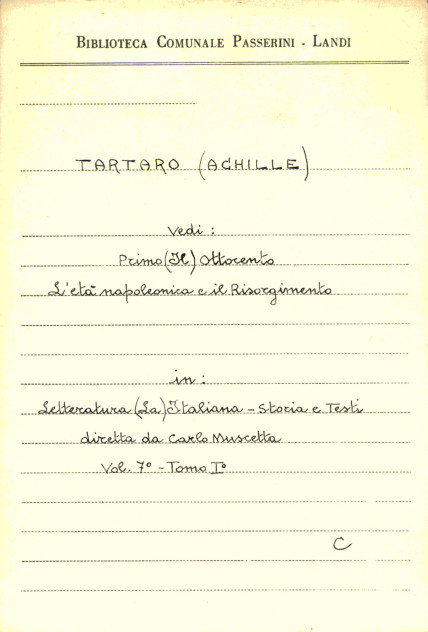 BIBLIOTECA COMUNALE PASSERINI - LANDI
TARTARO (ACHILLE)
Vedi :
Primo (Il) Ottocento
L'età napoleonica e il Risorgimento
in :
Letteratura (La) Italiana - Storia e Testi
diretta da Carlo Muscetta
Vol. 7° - Tomo I°
C